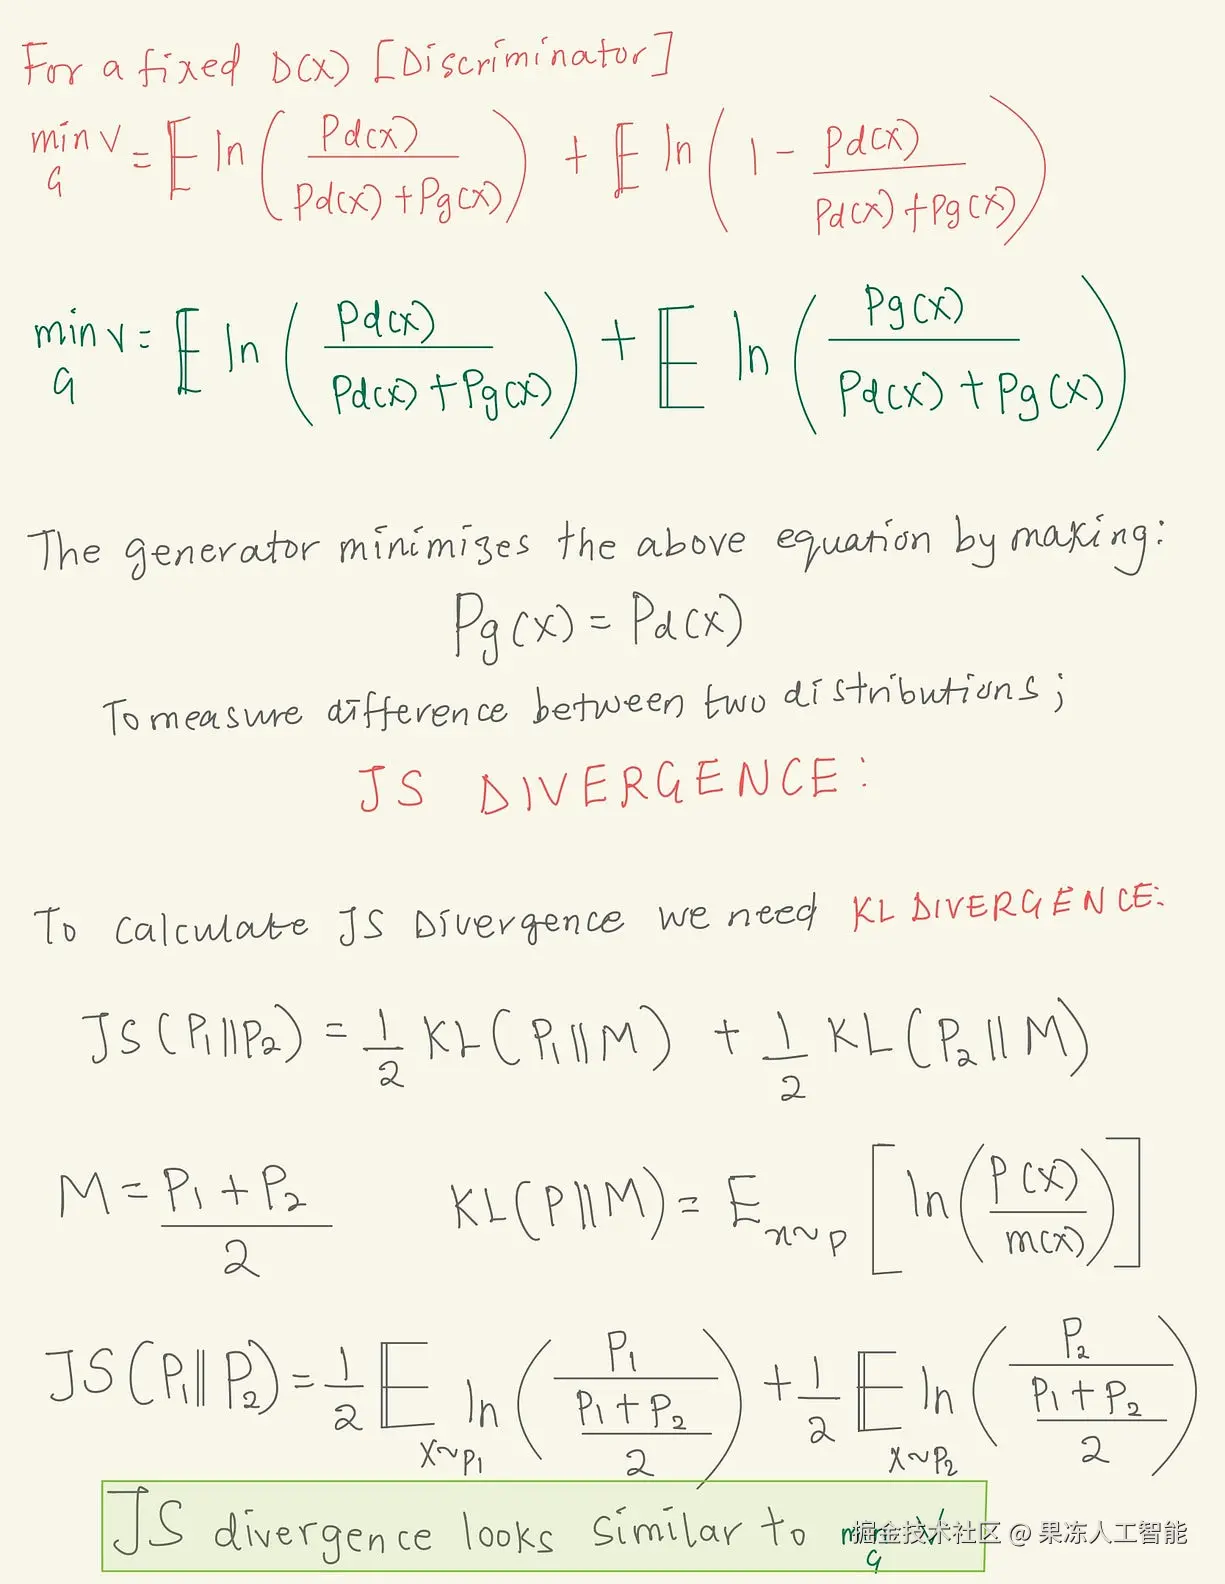 For a fixed D(x) [Discriminator]
min V = E ln ( Pd(x) / Pd(x) + Pg(x) ) + E ln ( 1 - Pd(x) / Pd(x) + Pg(x) )
G
min V = E ln ( Pd(x) / Pd(x) + Pg(x) ) + E ln ( Pg(x) / Pd(x) + Pg(x) )
G
The generator minimizes the above equation by making:
Pg(x) = Pd(x)
To measure difference between two distributions;
JS DIVERGENCE:
To calculate JS Divergence we need KL DIVERGENCE:
JS(P1||P2) = 1/2 KL(P1||M) + 1/2 KL(P2||M)
M = P1 + P2 / 2 KL(P||M) = E x~P [ ln ( P(x) / m(x) ) ]
JS(P1||P2) = 1/2 E x~P1 ln ( P1 / P1 + P2 / 2 ) + 1/2 E x~P2 ln ( P2 / P1 + P2 / 2 )
JS divergence looks similar to min V
G
掘金技术社区 @ 果冻人工智能